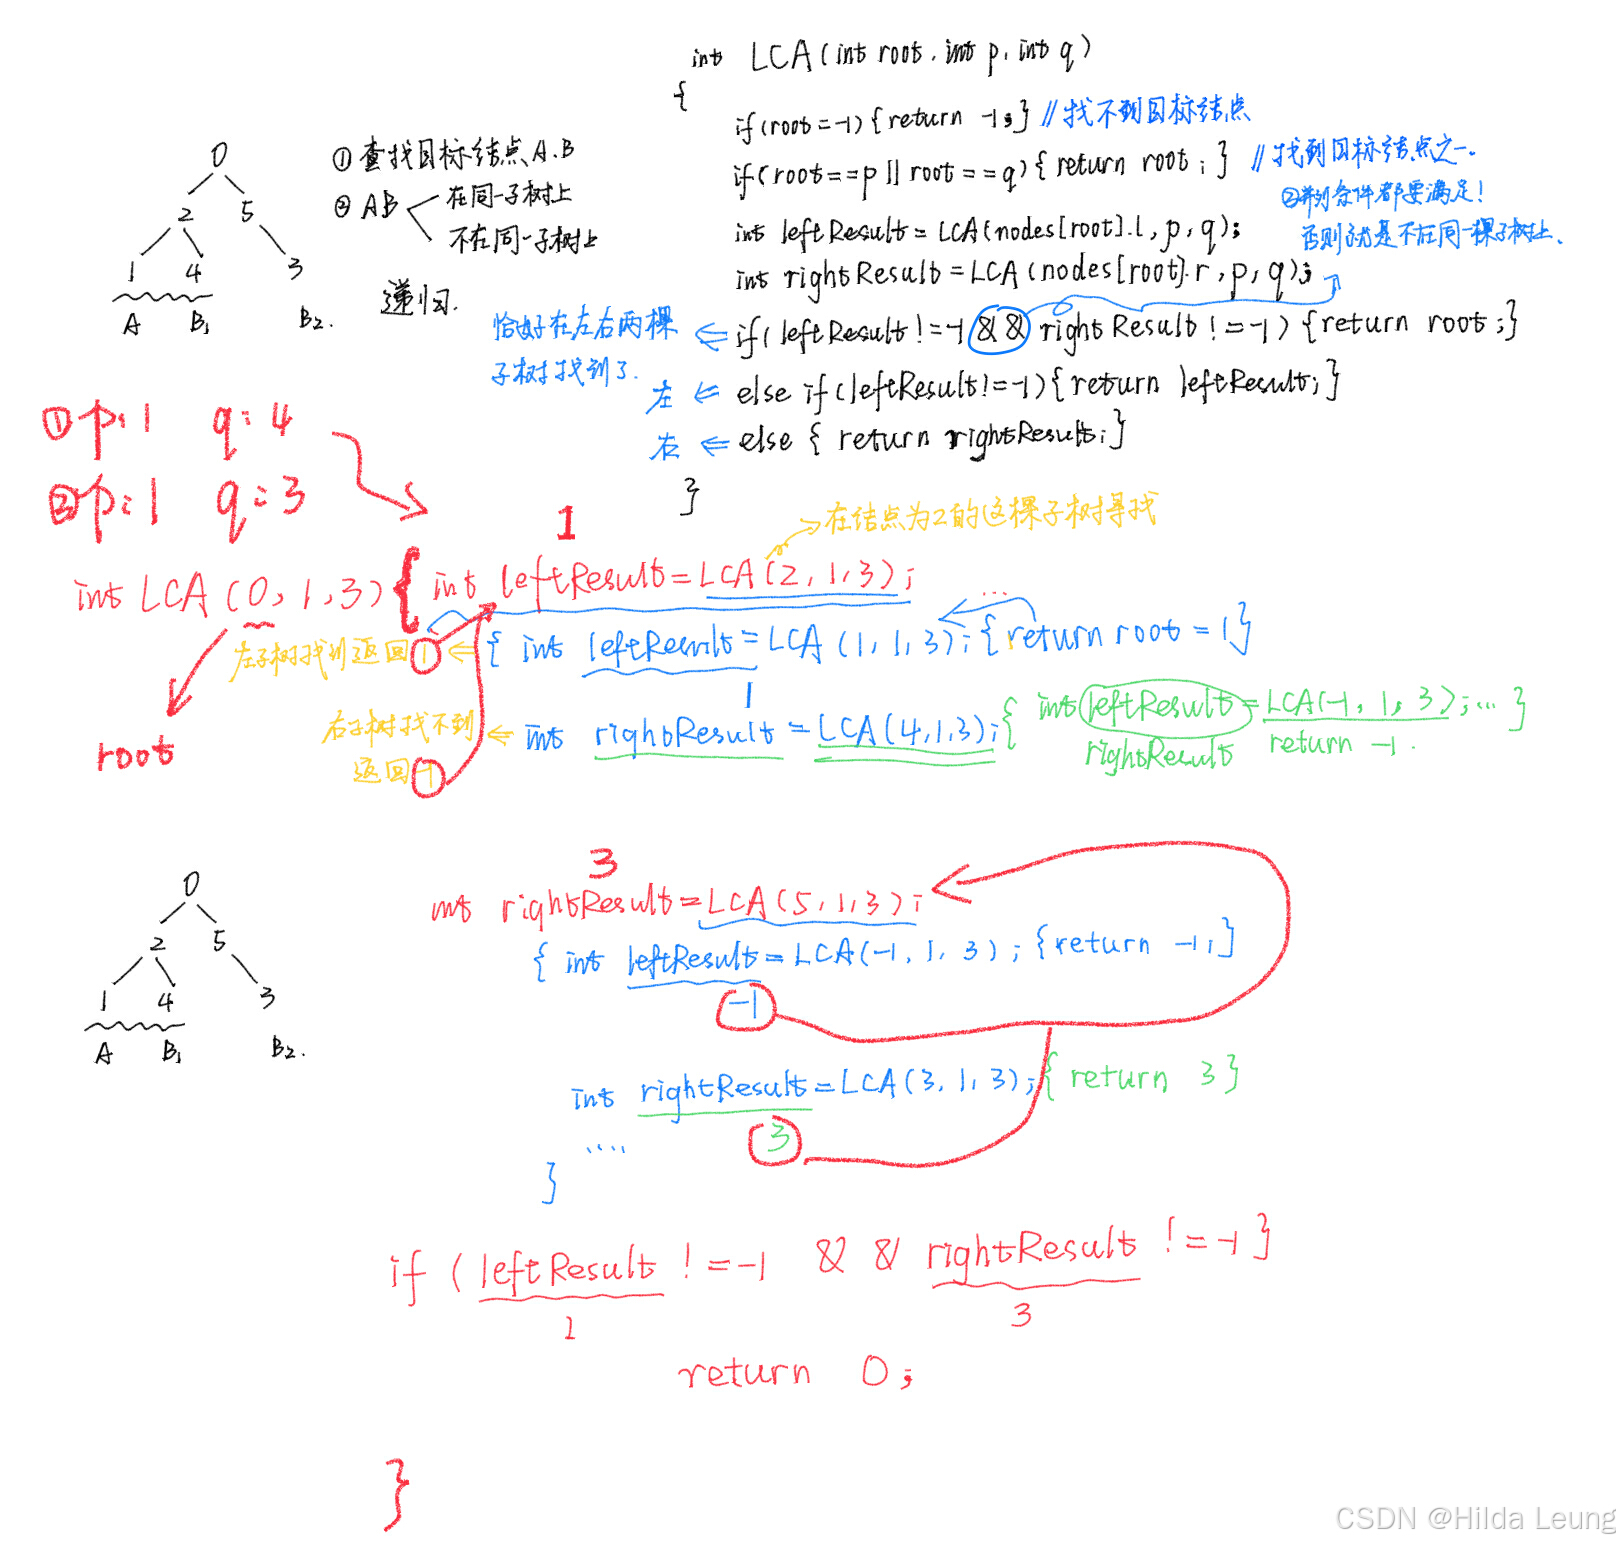 int LCA(int root, int p, int q)
{
if(root=-1){return -1;} //找不到目标结点
if(root==p || root==q){return root;} //找到目标结点之一。
int leftResult=LCA(nodes[root].l,p,q);
int rightResult=LCA(nodes[root].r,p,q);
②并列条件都要满足!
否则就是不在同一棵子树上.
if(leftResult!=-1 && rightResult!=-1){return root;}
恰好在左右两棵
子树找到了.
左 ⇐ else if(leftResult!=-1){return leftResult;}
右 ⇐ else{return rightResult;}
}
0
2 5
1 4 3
A B1 B2.
①查找目标结点A.B
②AB
在同一子树上
不在同一子树上
递归.
①p:1 q:4
②p:1 q:3
int LCA(0,1,3){
root
1
int leftResult=LCA(2,1,3);
在结点为2的这棵子树寻找
...
{int leftResult=LCA(1,1,3);{return root=1}
左子树找到返回1
1
int rightResult=LCA(4,1,3);{int leftResult=LCA(-1,1,3);...}
rightResult return -1.
右子树找不到
返回-1
0
2 5
1 4 3
A B1 B2.
3
int rightResult=LCA(5,1,3);
{int leftResult=LCA(-1,1,3);{return -1;}
-1
int rightResult=LCA(3,1,3);{return 3}
3
....
}
if(leftResult!=-1 && rightResult!=-1}
1 3
return 0;
}
CSDN @Hilda Leung